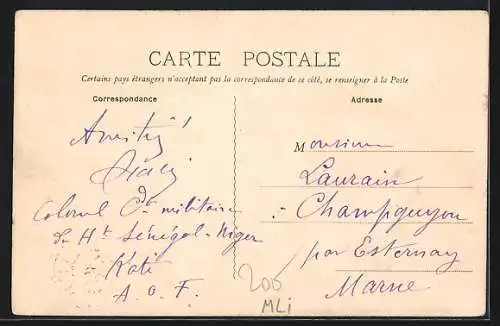 CARTE POSTALE
Certains pays étrangers n'acceptant pas la correspondance de ce côté, se renseigner à la Poste
Correspondance
Adresse
Amitié
Colonel Ct militaire
du Ht Sénégal-Niger
Kati
A.O.F.
Monsieur
Laurain
à Champguyon
par Esternay
Marne
200
MLi